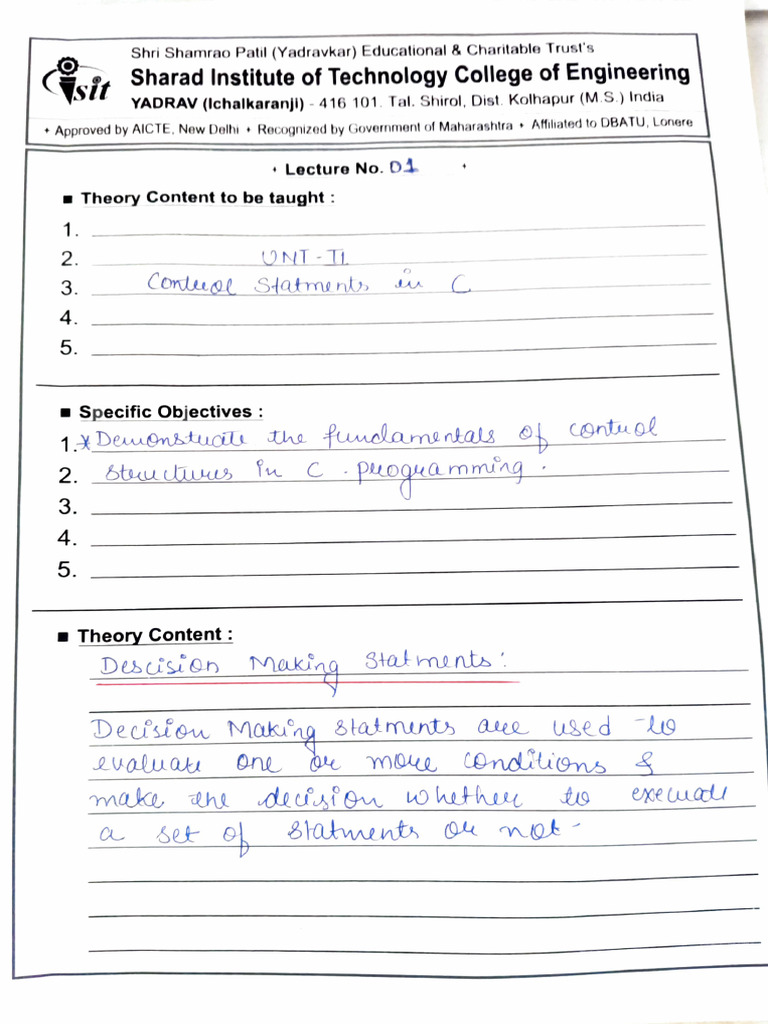 Shri Shamrao Patil (Yadravkar) Educational & Charitable Trust's
Sharad Institute of Technology College of Engineering
YADRAV (Ichalkaranji) - 416 101. Tal. Shirol, Dist. Kolhapur (M.S.) India
sit
Approved by AICTE, New Delhi • Recognized by Government of Maharashtra • Affiliated to DBATU, Lonere
Lecture No. 01
■ Theory Content to be taught :
1.
2. UNT - II
3. Control Statments in C
4.
5.
■ Specific Objectives :
1. * Demonstrate the fundamentals of control
2. structures in C . programming .
3.
4.
5.
■ Theory Content :
Descision Making Statments :
Decision Making Statments are used to
evaluate one or more conditions &
make the decision whether to execute
a set of statments or not -